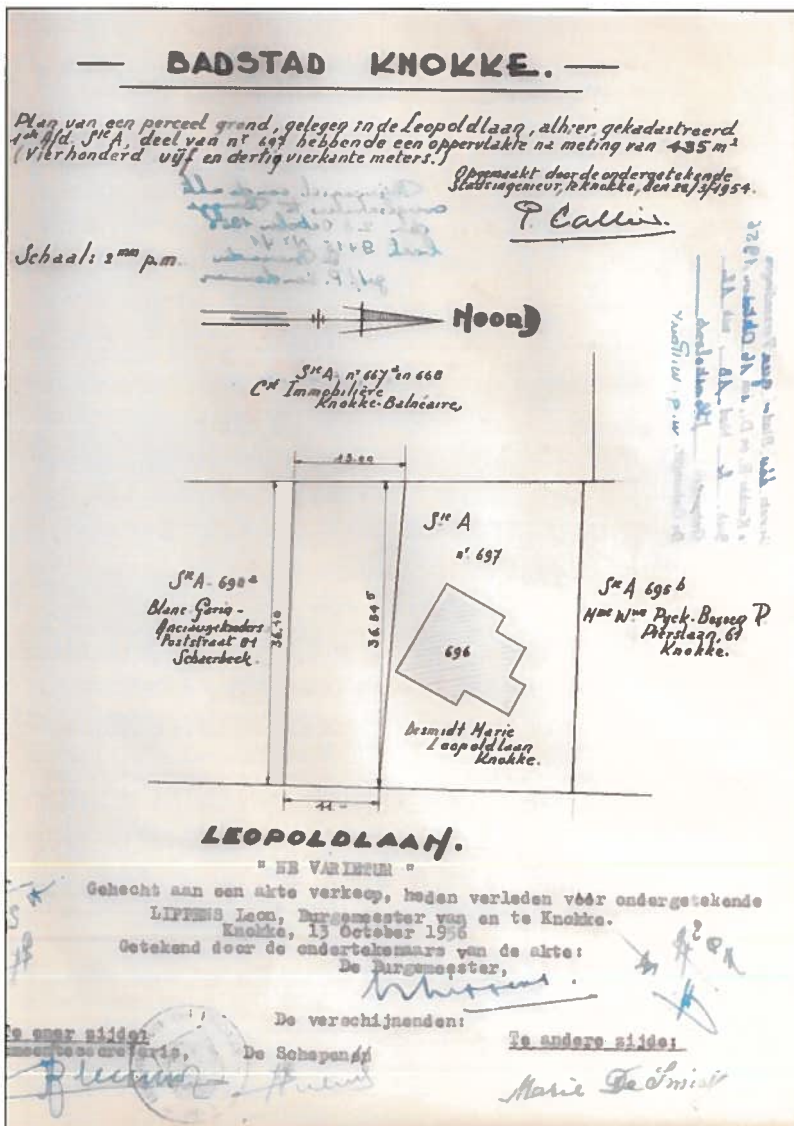 — BADSTAD KNOKKE. —
Plan van een perceel grond, gelegen in de Leopoldlaan, alhier gekadastreerd
1ste Afd. Sie A, deel van nr 697 hebbende een oppervlakte na meting van 435 m²
(Vierhonderd vijf en dertig vierkante meters.)
Opgemaakt door de ondergetekende
Stadsingenieur, te Knokke, den 22/3/1954.
P. Callier.
Schaal: 2 mm p.m.
NOORD
Sie A nr 667a en 668
Cie Immobilière
Knokke-Balnéaire,
13.00
Sie A
nr 697
Sie A - 698a
Blanc Garin-
Poststraat 81
Schaerbeek.
36,10
36,84⁵
696
Sie A 695b
Mme Wwe Pyck-Bossen P
Pierslaan, 61
Knokke.
Desmidt Marie
Leopoldlaan
Knokke.
11.-
LEOPOLDLAAN.
" NE VARIETUR "
Gehecht aan een akte verkoop, heden verleden vóór ondergetekende
LIPPENS Leon, Burgemeester van en te Knokke.
Knokke, 13 October 1956
Getekend door de ondertekenaars van de akte:
De Burgemeester,
De verschijnenden:
Te ener zijde:
De Schepen
Te andere zijde:
Marie De Smidt